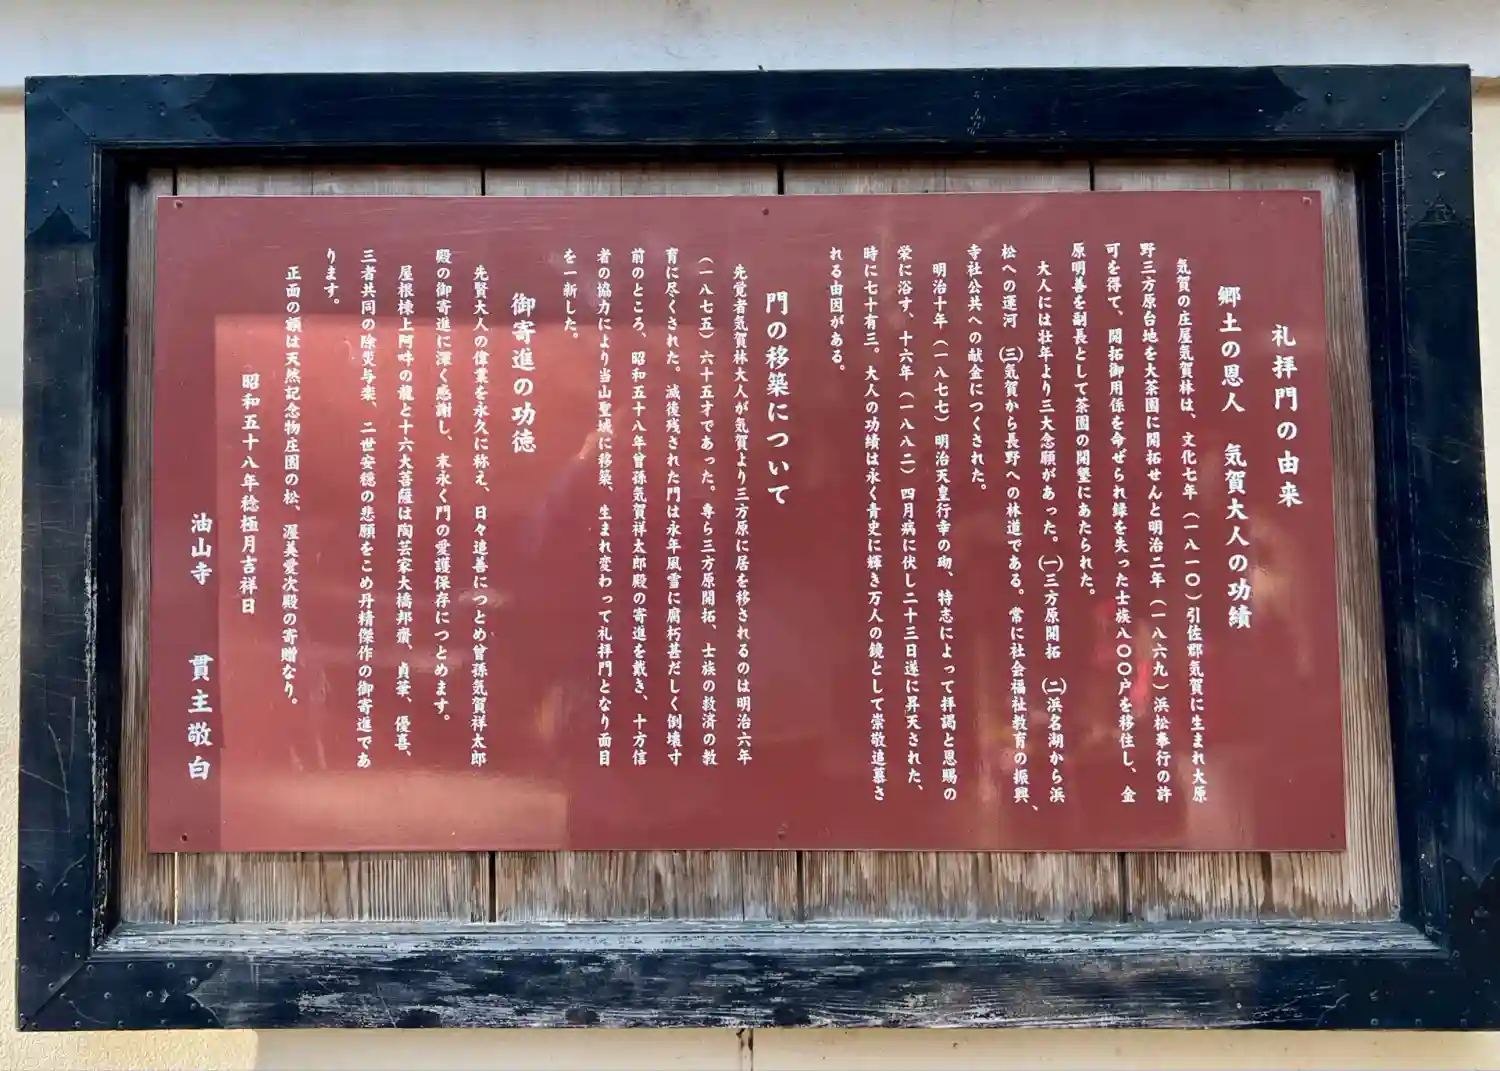 礼拝門の由来
郷土の恩人　気賀大人の功績
気賀の庄屋気賀林は、文化七年（一八一〇）引佐郡気賀に生まれ大原
野三方原台地を大茶園に開拓せんと明治二年（一八六九）浜松奉行の許
可を得て、開拓御用係を命ぜられ録を失った士族八〇〇戸を移住し、金
原明善を副長として茶園の開墾にあたられた。
大人には壮年より三大念願があった。㈠三方原開拓　㈡浜名湖から浜
松への運河　㈢気賀から長野への林道である。常に社会福祉教育の振興、
寺社公共への献金につくされた。
明治十年（一八七七）明治天皇行幸の砌、特志によって拝謁と恩賜の
栄に浴す、十六年（一八八二）四月病に伏し二十三日遂に昇天された、
時に七十有三。大人の功績は永く青史に輝き万人の鏡として崇敬追慕さ
れる由因がある。
門の移築について
先覚者気賀林大人が気賀より三方原に居を移されるのは明治六年
（一八七五）六十五才であった。専ら三方原開拓、士族の救済の教
育に尽くされた。滅後残された門は永年風雪に腐朽甚だしく倒壊寸
前のところ、昭和五十八年曾孫気賀祥太郎殿の寄進を戴き、十方信
者の協力により当山聖域に移築、生まれ変わって礼拝門となり面目
を一新した。
御寄進の功徳
先賢大人の偉業を永久に称え、日々追善につとめ曾孫気賀祥太郎
殿の御寄進に深く感謝し、末永く門の愛護保存につとめます。
屋根棟上阿吽の龍と十六大菩薩は陶芸家大橋邦齋、貞華、優喜、
三者共同の除災与楽、二世安穏の悲願をこめ丹精傑作の御寄進であ
ります。
正面の額は天然記念物庄園の松、渥美愛次殿の寄贈なり。
昭和五十八年稔極月吉祥日
油山寺　貫主敬白